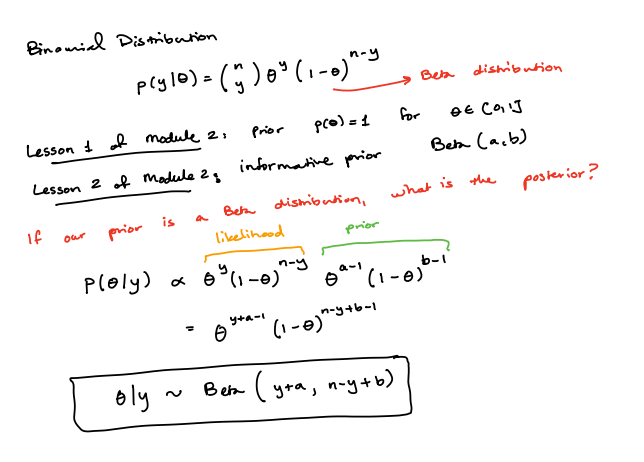 Binomial Distribution
p(y|θ) = (n y) θ^y (1-θ)^{n-y} → Beta distribution
Lesson 1 of module 2: prior p(θ)=1 for θ∈[0,1]
Lesson 2 of module 2: informative prior Beta (a,b)
If our prior is a Beta distribution, what is the posterior?
likelihood prior
P(θ|y) ∝ θ^y (1-θ)^{n-y} θ^{a-1} (1-θ)^{b-1}
= θ^{y+a-1} (1-θ)^{n-y+b-1}
θ|y ~ Beta (y+a, n-y+b)